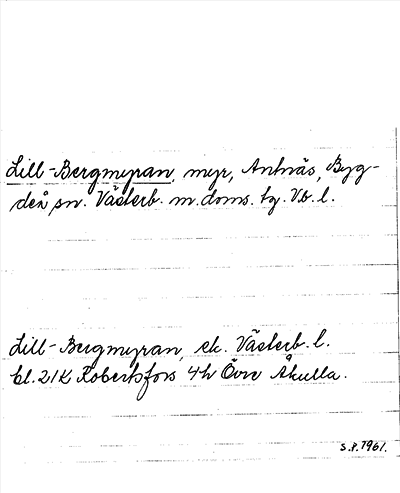 Lill-Bergmyran, myr, Antnäs, Byg-
deå sn. Västerb. m. doms. tg. Vb. l.
Lill-Bergmyran, ek. Västerb. l.
bl. 21K Robertsfors 4h Övre Åkulla.
S.P. 1961.